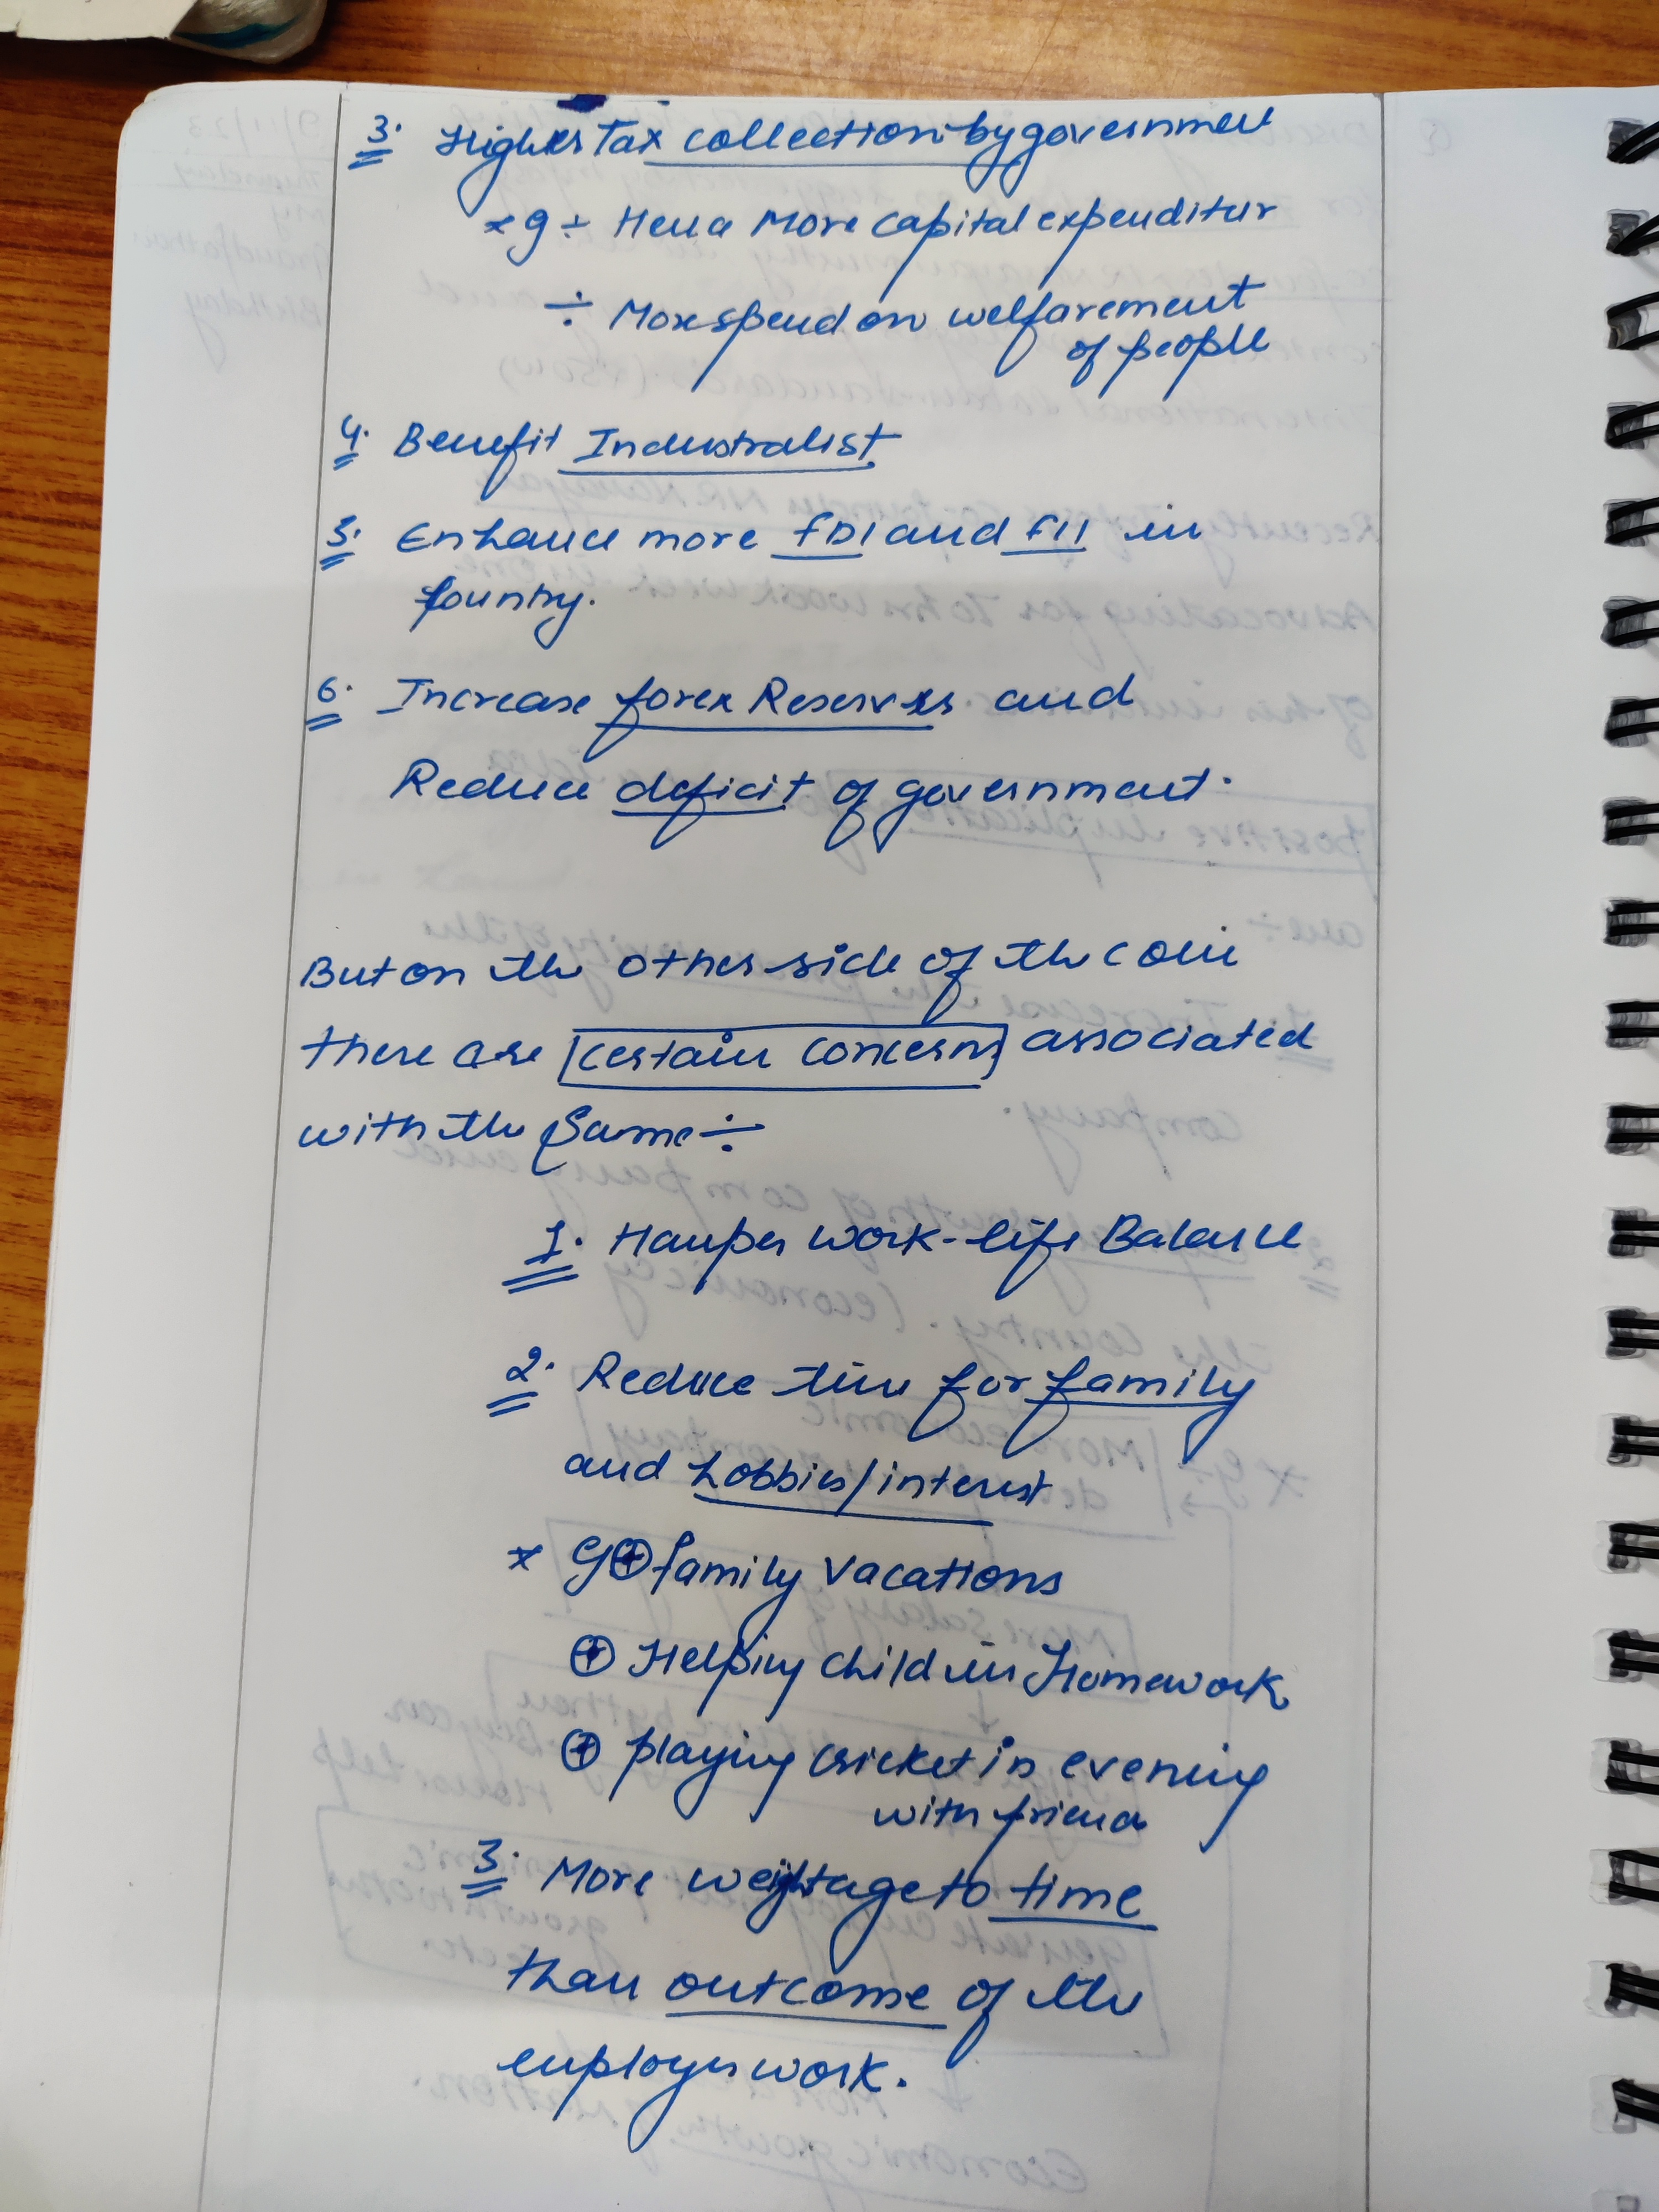 3. Higher Tax collection by government
xg ÷ Hence More capital expenditur
÷ More spend on welfarement
of people
4. Benefit Industralist.
5. Enhance more FDI and FII in
country.
6. Increase forex Reserves and
Reduce deficit of government.
But on the other side of the coin
there are certain concerns associated
with the same ÷
1. Hamper work-life Balance
2. Reduce time for family
and hobbies/interest
x g + family vacations
+ Helping child in Homework
+ playing cricket in evening
with friend
3. More weightage to time
than outcome of the
employer work.